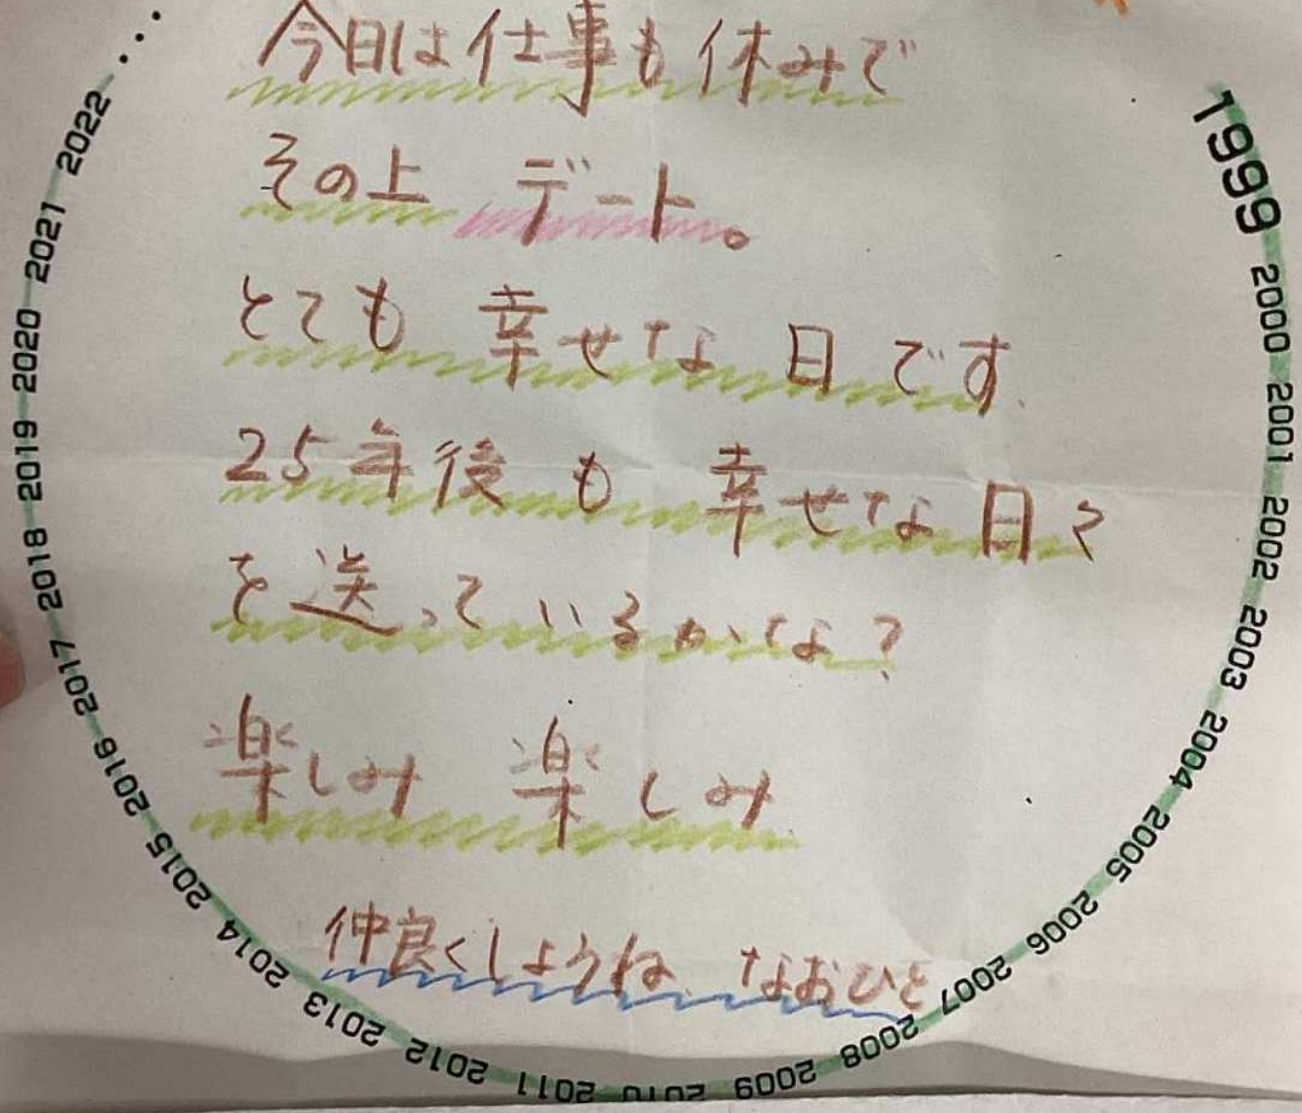 今日は仕事も休みで
その上 デート。
とても 幸せな 日 です
25年後 も 幸せな 日々
を 送っているかな?
楽しみ 楽しみ
仲良くしようね なおひと
1999 2000 2001 2002 2003 2004 2005 2006 2007 2008 2009 2010 2011 2012 2013 2014 2015 2016 2017 2018 2019 2020 2021 2022 ...